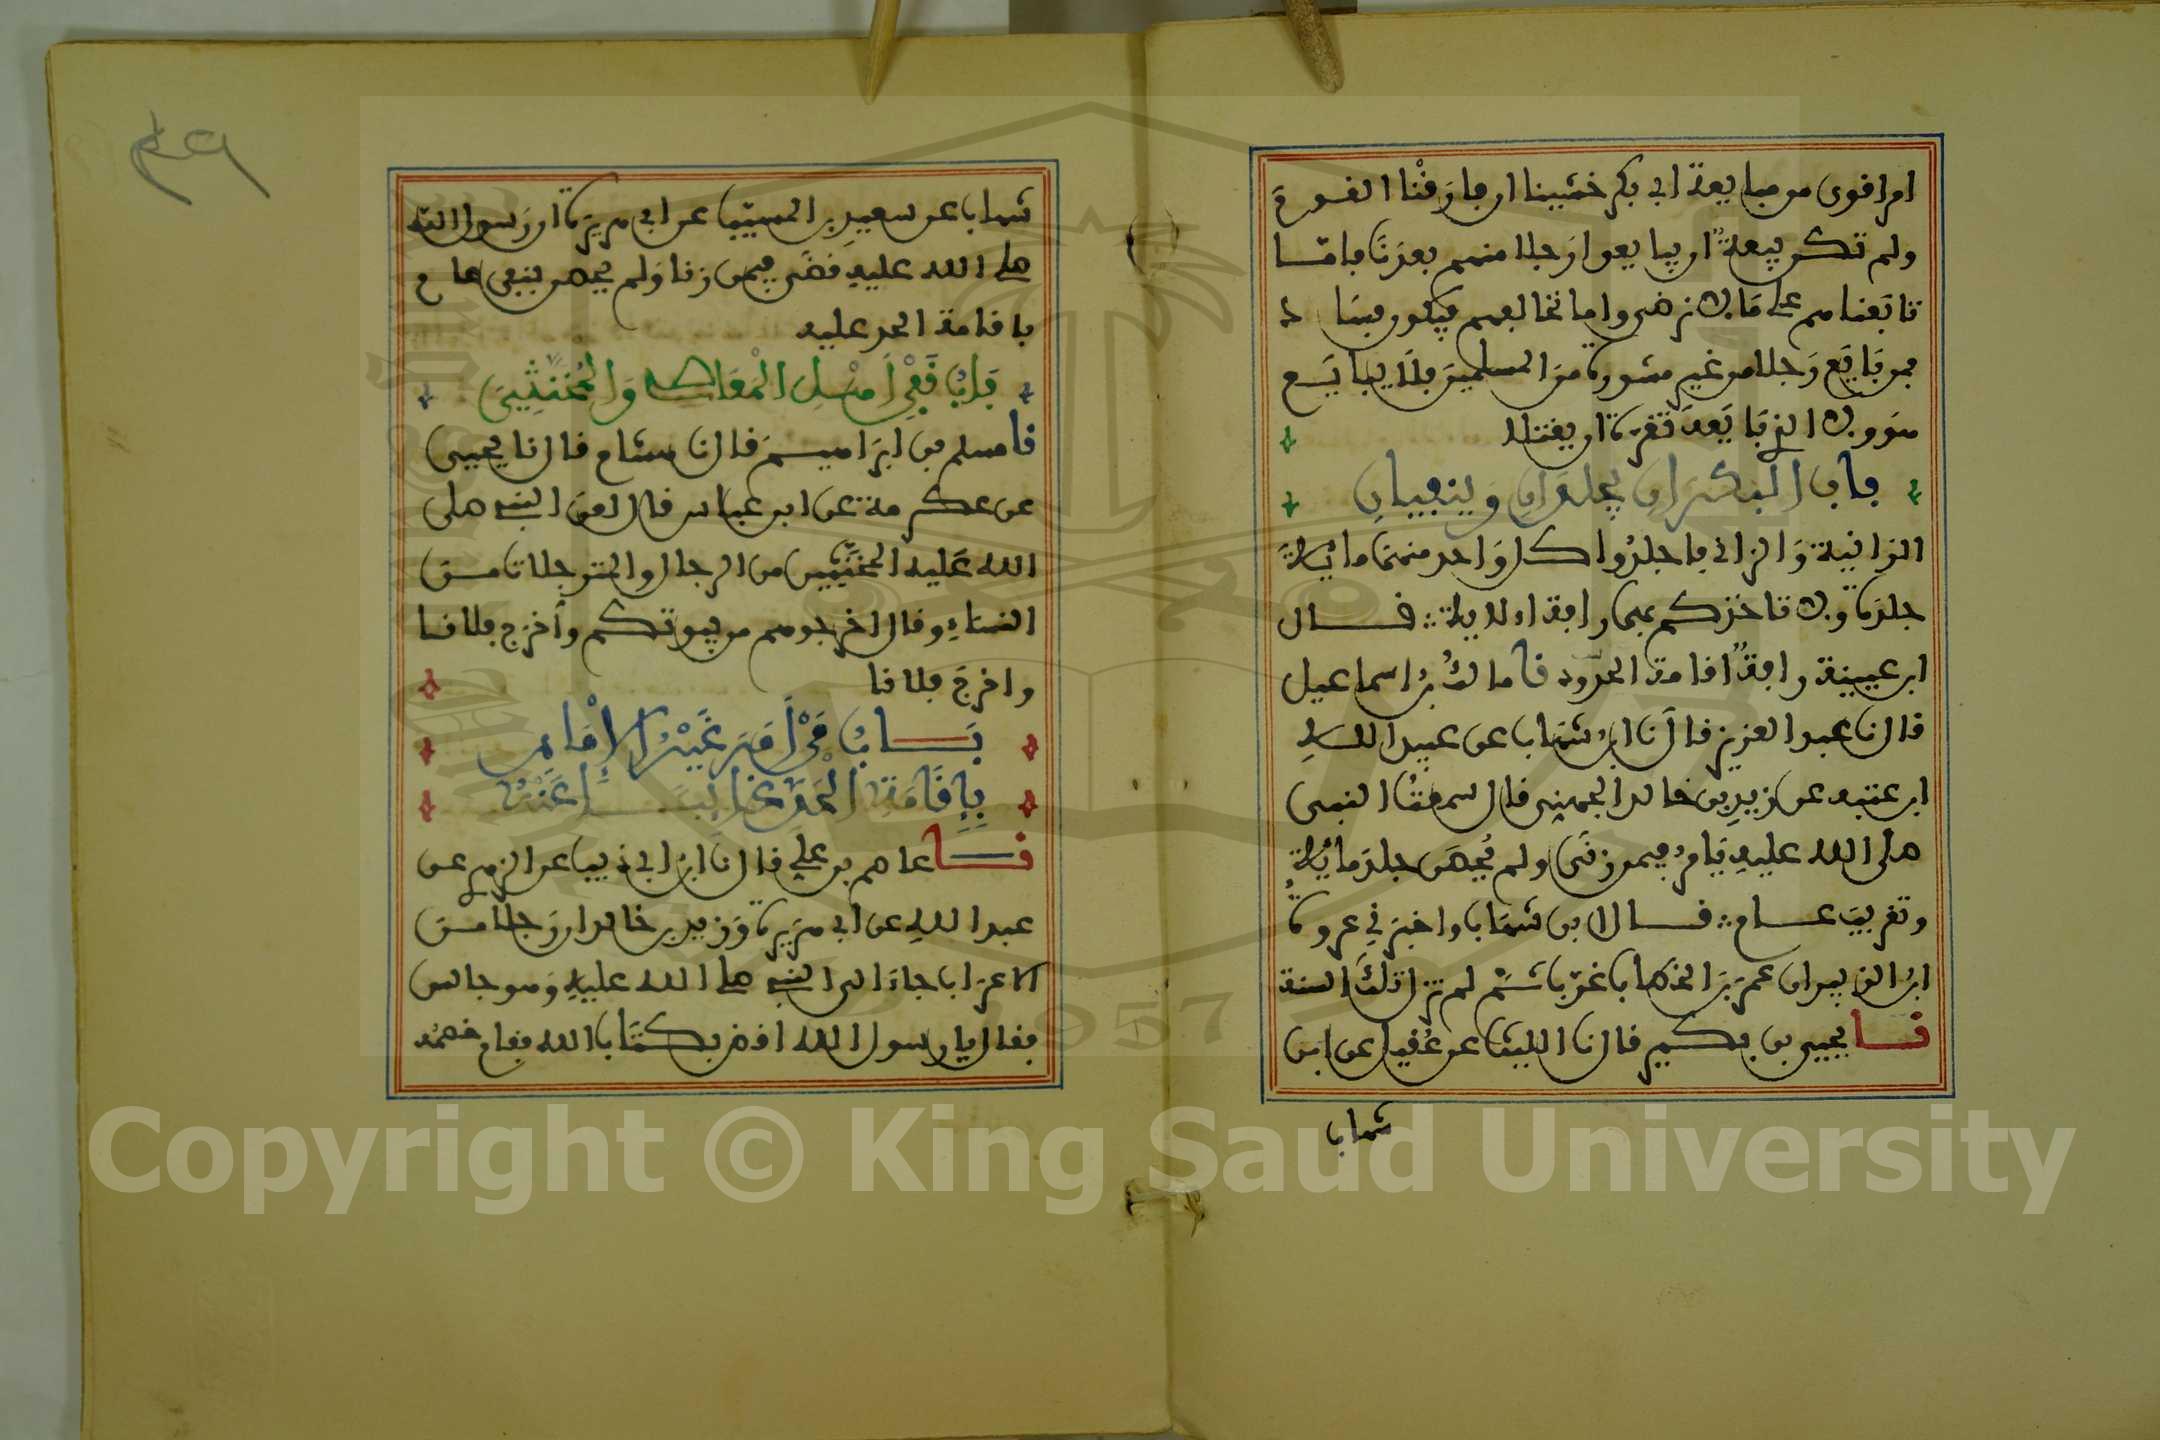 امرا اقوى من مبايعة ابي بكر خشينا ان فارقنا القوم
ولم تكن بيعة ان يبايعوا رجلا منهم بعدنا فاما
تابعناهم على ما لا نرضى واما نخالفهم فيكون فساد
فمن بايع رجلا من غير مشورة من المسلمين فلا يبايع
هو ولا الذي بايعه تغرة ان يقتلا
باب البكران يجلدان وينفيان
الزانية والزاني فاجلدوا كل واحد منهما مائة
جلدة ولا تاخذكم بهما رافة الاية قال
ابن عيينة رافة اقامة الحدود نا مالك بن اسماعيل
قال نا عبد العزيز قال انا ابن شهاب عن عبيد الله
ابن عتبة عن زيد بن خالد الجهني قال سمعت النبي
صلى الله عليه يامر فيمن زنى ولم يحصن جلد مائة
وتغريب عام قال ابن شهاب واخبرني عروة
ابن الزبير ان عمر بن الخطاب غرب ثم لم تزل تلك السنة
نا يحيى بن بكير قال نا الليث عن عقيل عن ابن
شهاب
شهاب عن سعيد بن المسيب عن ابي هريرة ان رسول الله
صلى الله عليه قضى فيمن زنا ولم يحصن بنفي عام
باقامة الحد عليه
باب نفي اهل المعاصي والمخنثين
نا مسلم بن ابراهيم قال نا هشام قال نا يحيى
عن عكرمة عن ابن عباس قال لعن النبي صلى
الله عليه المخنثين من الرجال والمترجلات من
النساء وقال اخرجوهم من بيوتكم وأخرج فلانا
واخرج فلانا
باب من أمر غير الإمام
بإقامة الحد غائبا عنه
نا عاصم بن علي قال نا ابن ابي ذيب عن الزهري عن
عبيد الله عن ابي هريرة وزيد بن خالد ان رجلا من
الاعراب جاء الى النبي صلى الله عليه وهو جالس
فقال يا رسول الله اقض بكتاب الله فقام خصمه
Copyright © King Saud University
1957